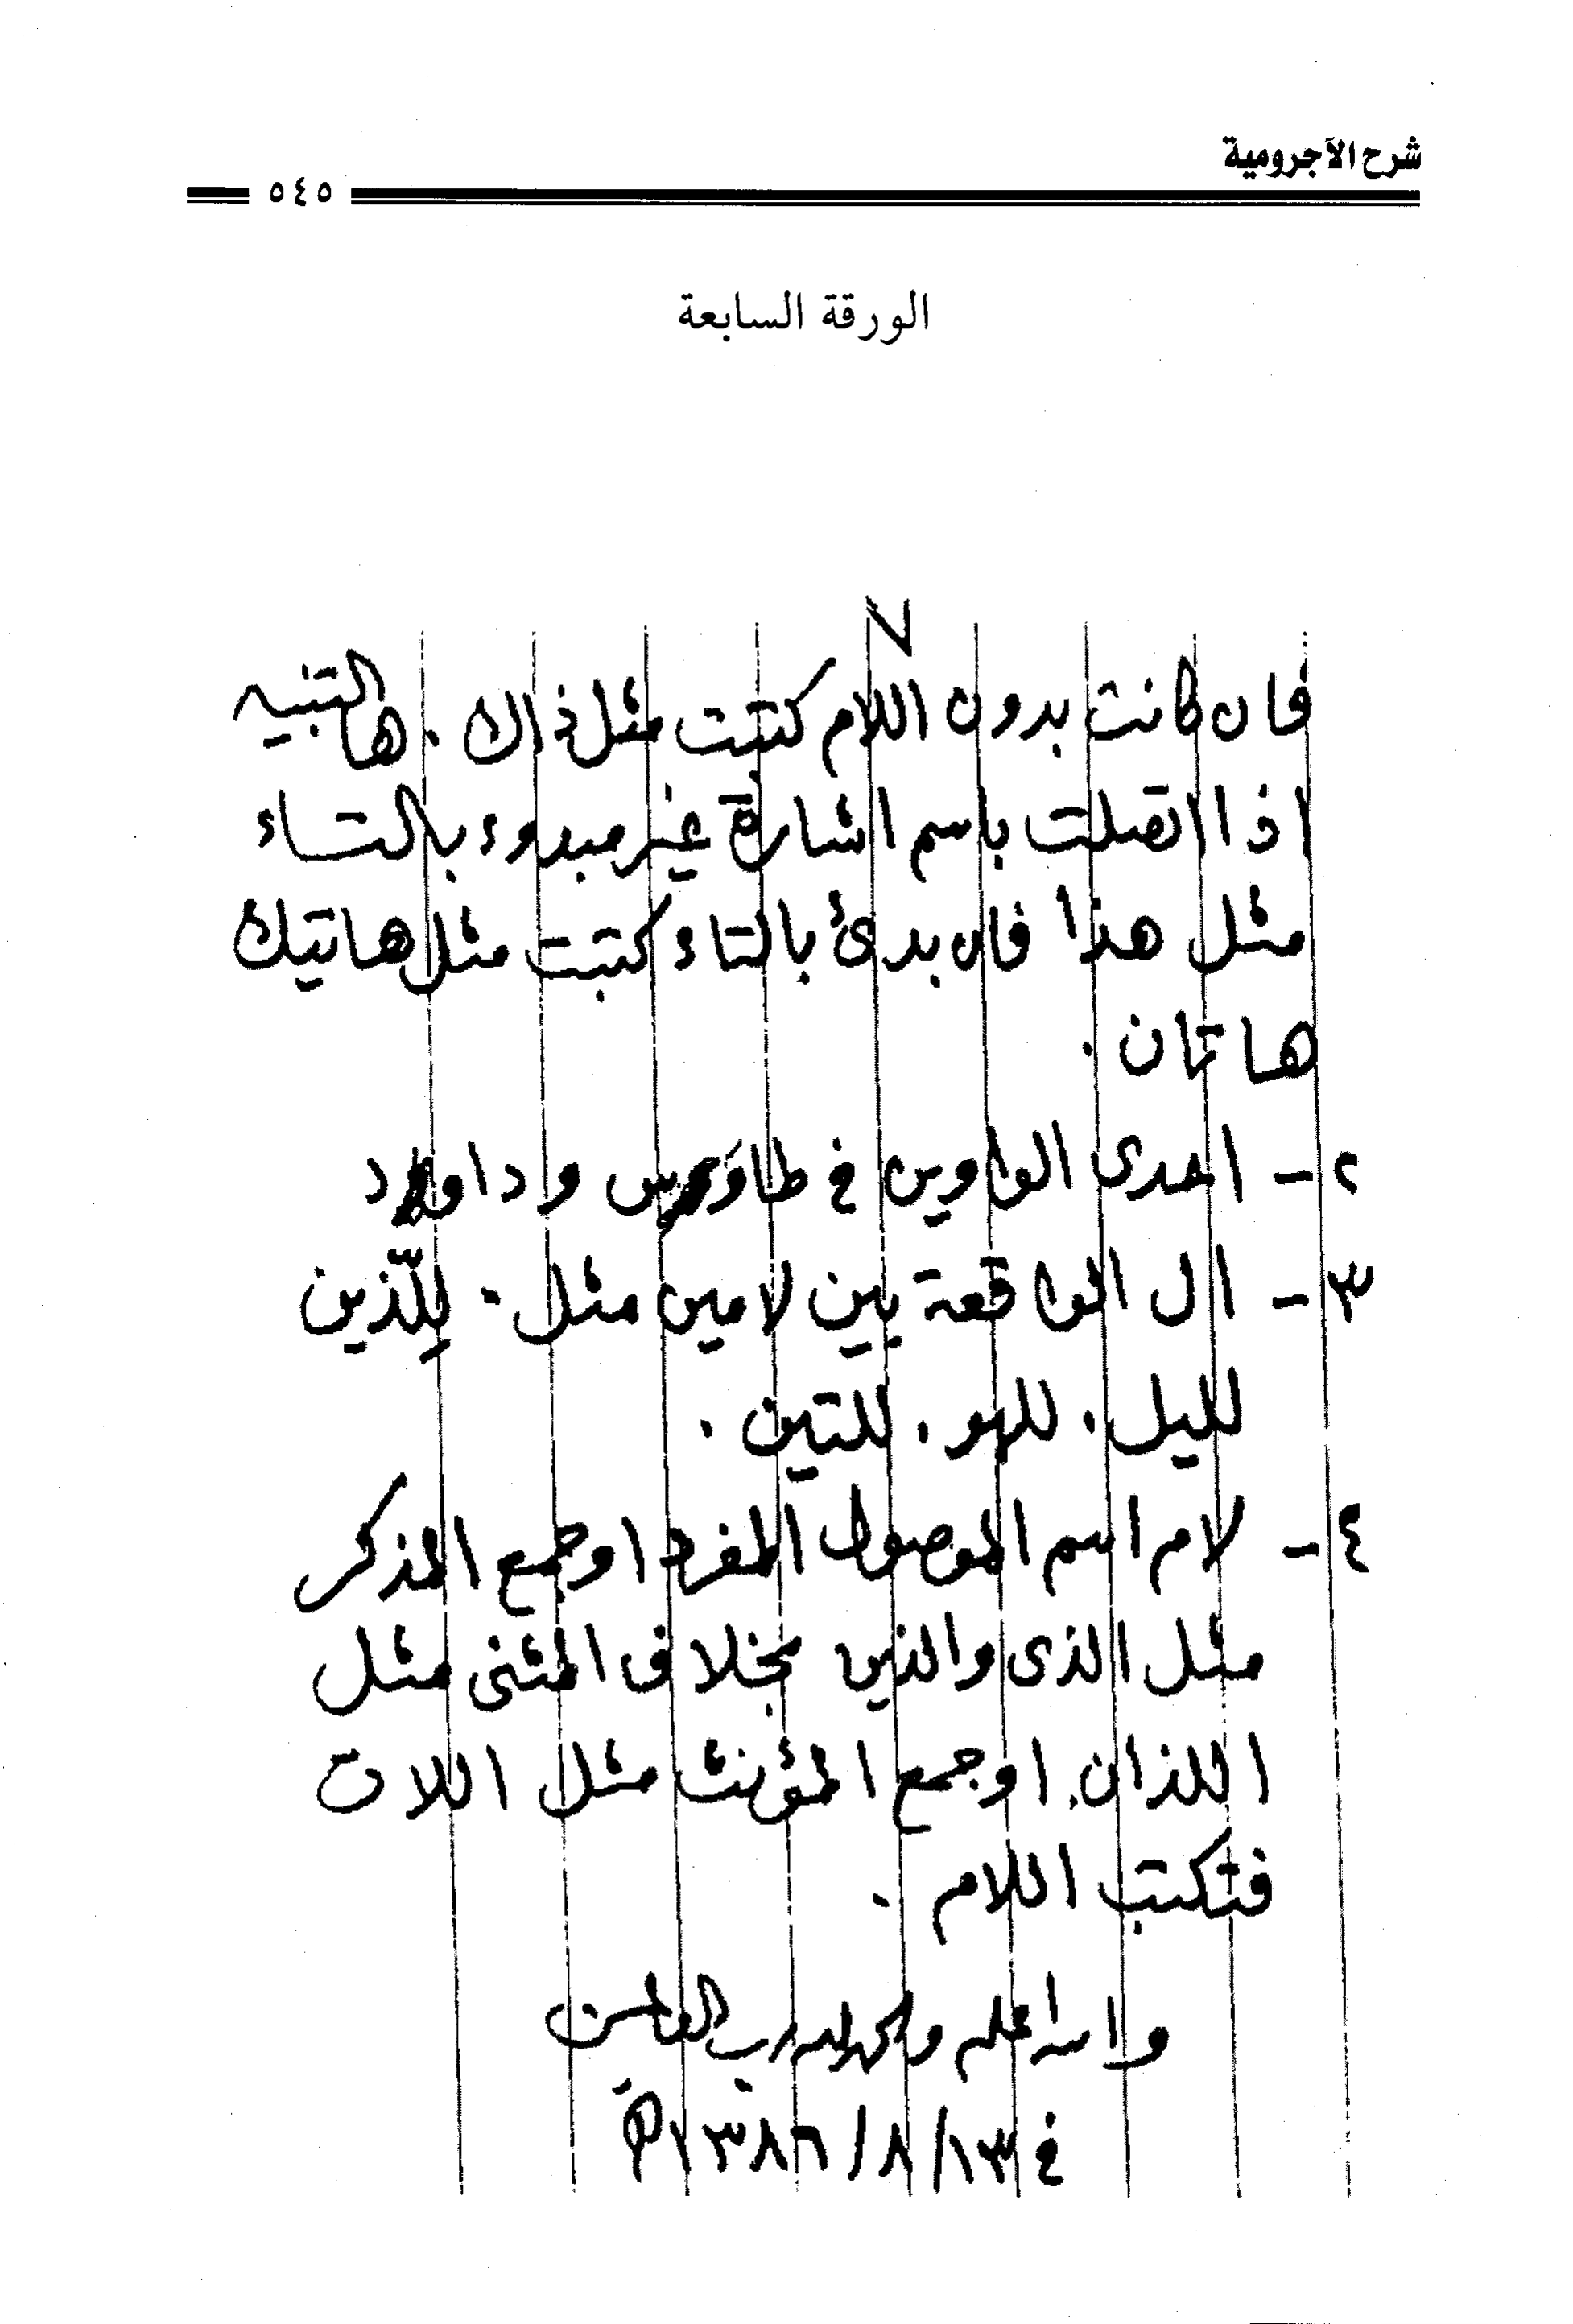 شرح الآجرومية
٥٤٥
الورقة السابعة
٧
فان كانت بدون اللام كتبت مثل ذاك . ها التنبيه
اذا اتصلت باسم اشارة غير مبدوء بالتاء
مثل هذا فان بدئ بالتاء كتبت مثل هاتيك
هاتان .
٢ - احدى الواوين في طاوس وداود
٣ - ال الواقعة بين لامين مثل . لِلّذين
لليل . للهو . للتين .
٤ - لام اسم الموصول المفرد او جمع المذكر
مثل الذى والذين بخلاف المثنى مثل
اللذان . او جمع المؤنث مثل اللات
فتكتب اللام .
والله اعلم والحمد لله رب العالمين
في ١٣/٨/١٣٨٦هـ